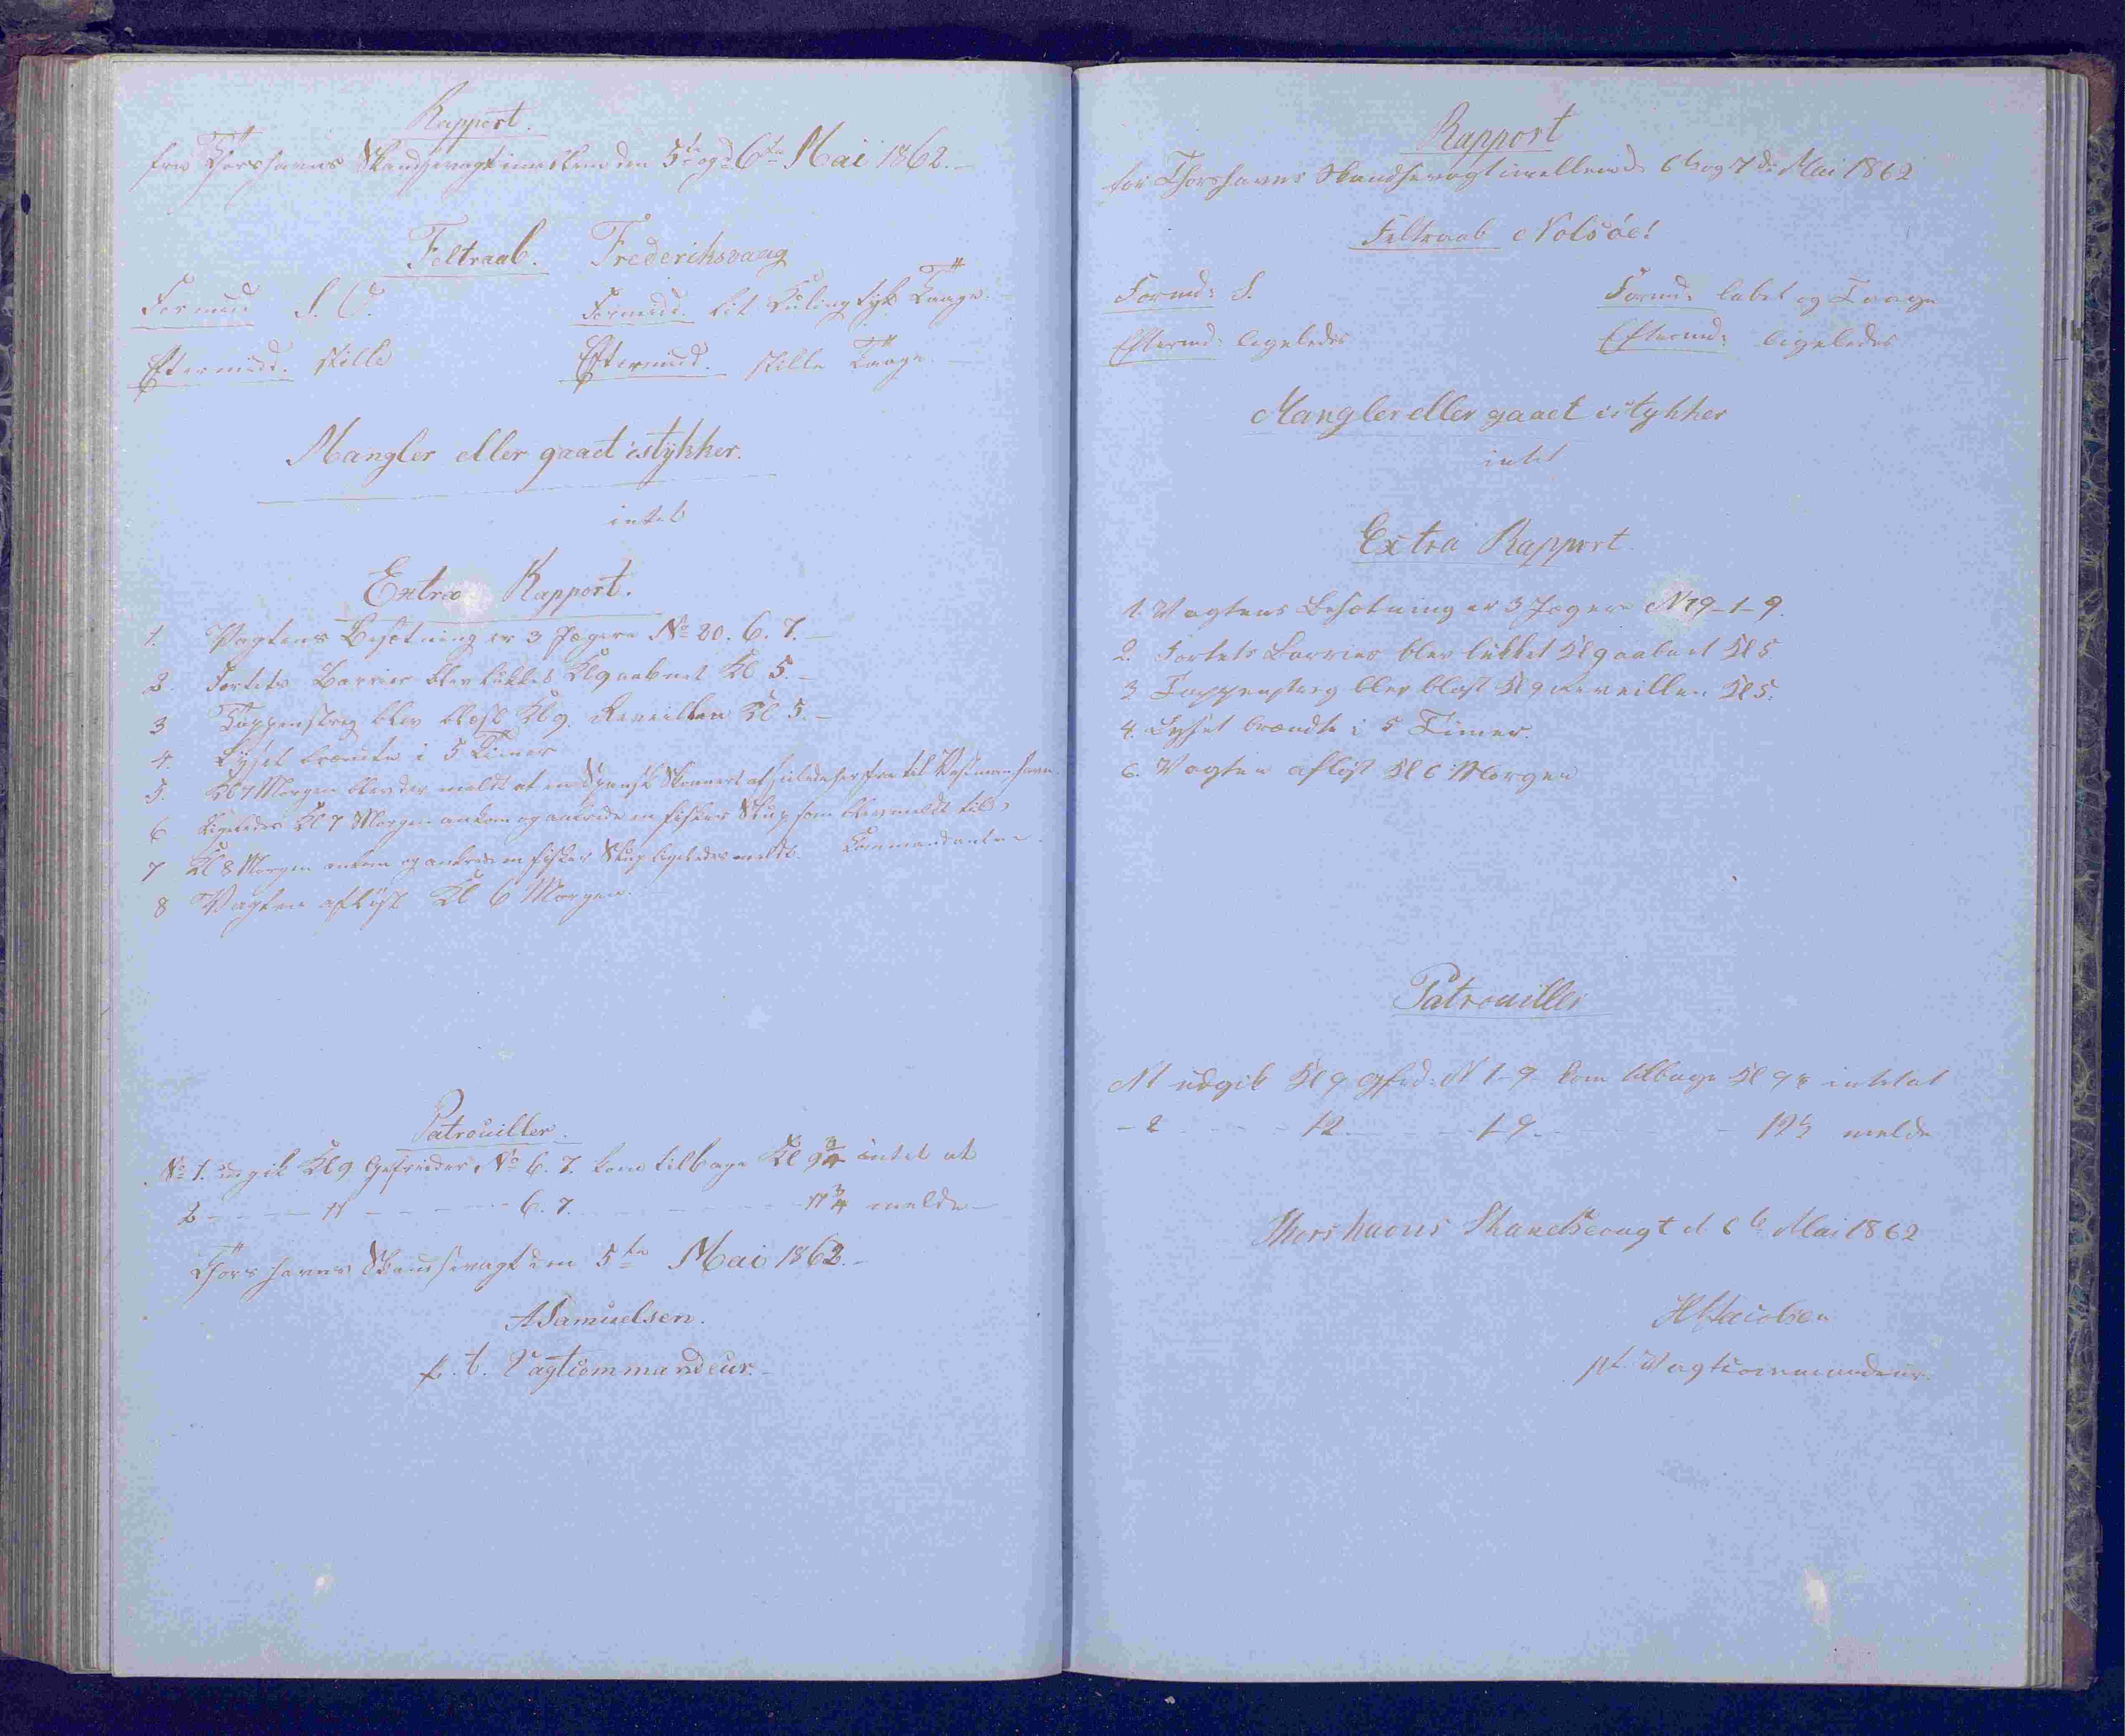 Rapport.
fra Thorshavns Skandsevagt imellem den 5te og 6te Mai 1862.
Feltraab. Frederiksvaag
Formidd S.O. Formidd. lit Kuling tyk Taage.
Eftermidd. stille Eftermidd. stille Taage
Mangler eller gaaet istykker.
intet
Extra Rapport.
1. Vagtens Besætning er 3 Jægere No 20. 6. 7.
2. Fortets Barriere blev lukket Kl 9 aabnet Kl 5.
3 Tappenstreg blev blæst Kl 9. Reveillen Kl 5.
4. Lyset brændte i 5 Timer
5. Kl 7 Morgen blev der meldt at en Spensk Skonnert afseilede herfra til Vestmanhavn
6 Ligeledes Kl 7 Morgen ankom og ankrede en fisker Slup som blev meldt til
7 Kl 8 Morgen ankom og ankrede en fisker Slup ligeledes meldt. Commandanten.
8 Vagten afløst Kl 6 Morgen.
Patrouiller.
No 1. udgik Kl 9 Gefreider No 6. 7. kom tilbage Kl 9 3/4 intet at
2 - - - 11 - - - 6. 7. - - - 11 3/4 melde
Thorshavns Skandsevagt den 5te Mai 1862.
A Samuelsen.
p. t. Vagtcommandeur.
Rapport
for Thorshavns Skandsevagt imellem d: 6te og 7de Mai 1862
Feltraab Nolsöe!
Formd: S. Formd: labet og Taage
Eftermd: ligeledes Eftermd: ligeledes
Mangler eller gaaet istykker
intet
Extra Rapport.
1. Vagtens Besætning er 3 Jægere N 19-1-9.
2. Fortets Barriere blev lukket Kl 9 aabnet Kl 5
3 Tappenstreg blev blæst Kl 9 Reveillen Kl 5.
4. Lyset brændte i 5 Timer.
6. Vagten afløst Kl 6 Morgen
Patrouiller
N1 udgik Kl 9 Gfrd: N 1-9 kom tilbage Kl 9½ intet at
- 2 - - - 12 - - - 1-9 - - - 12½ melde
Thorshavns Skandsevagt d 6te Mai 1862
H Jacobsen
pt. Vagtcommandeur.